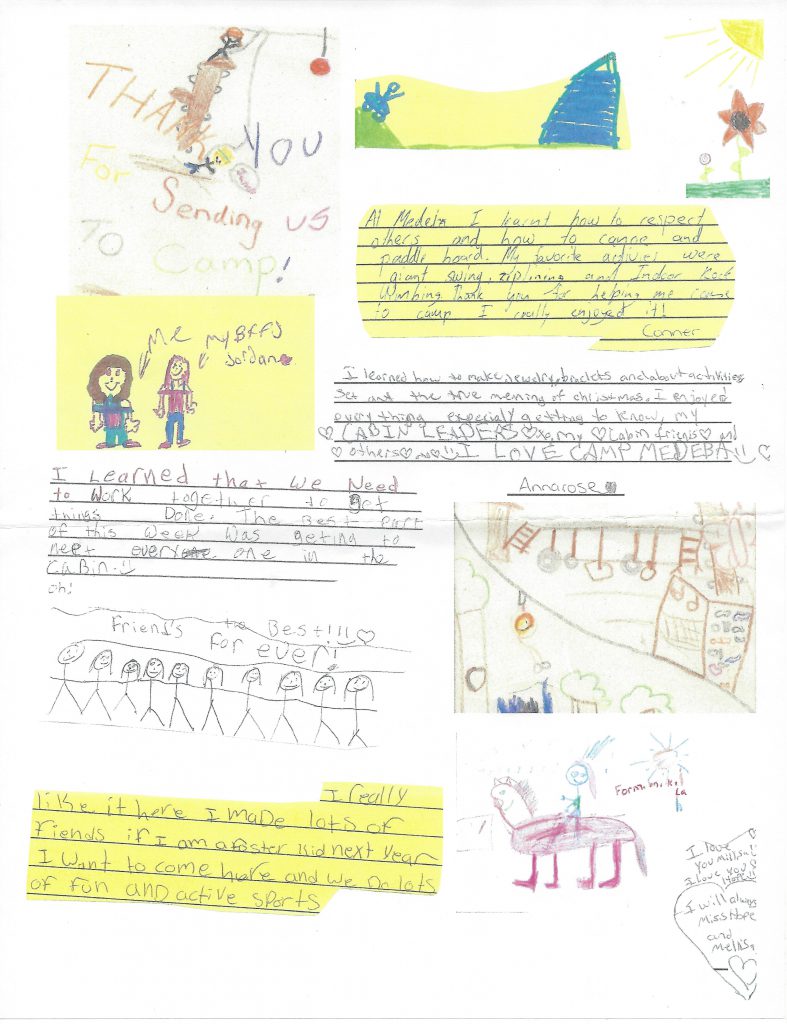 THANK
YOU
For
Sending US
TO Camp!
At Medeba I learnt how to respect
others and how to canoe and
paddle board. My favorite activies were
giant swing, ziplining and Indoor Rock
Climbing. Thank you for helping me come
to camp I really enjoyed it!
Conner
Me
my BFFJ
Jordan
I learned how to make jewelry, braclets and about activities
set and the true mening of christmas. I enjoyed
everything expecialy getting to know, my
CABIN LEADERS my Cabin friends and
others I LOVE CAMP MEDEBA!!
Annarose
I Learned that we Need
to work together to get
things Done. The Best part
of this week was geting to
meet every one in the
Cabin.
oh!
Friends the Best!!!
for ever!
I really
like it here I made lots of
fiends if I am a foster kid next year
I want to come here and we Do lots
of fun and active sports
I love
you
I love you
I will always
Miss Hope
and